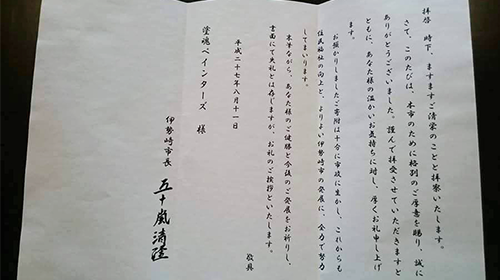 拝啓　時下、ますますご清栄のことと拝察いたします。
さて、このたびは、本市のために格別のご厚意を賜り、誠に
ありがとうございました。謹んで拝受させていただきますと
ともに、あなた様の温かいお気持ちに対し、厚くお礼申し上げ
ます。
お預かりしましたご寄附は十分に市政に生かし、これからも
住民福祉の向上と、よりよい伊勢崎市の発展に、全力で努力
してまいります。
末筆ながら、あなた様のご健勝と今後のご発展をお祈りし、
書面にて失礼とは存じますが、お礼のご挨拶といたします。
敬具
平成二十七年八月十一日
塗魂ペインターズ　様
伊勢崎市長　五十嵐清隆